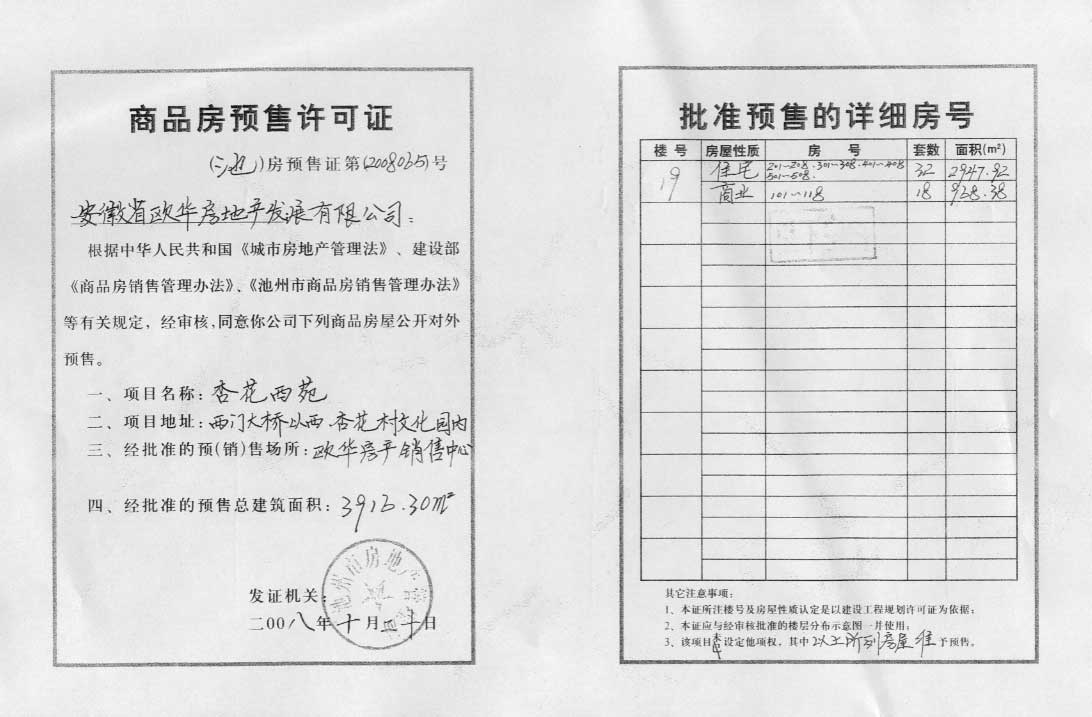 商品房预售许可证
(池)房预售证第(2008035)号
安徽省欧华房地产发展有限公司:
根据中华人民共和国《城市房地产管理法》、建设部
《商品房销售管理办法》、《池州市商品房销售管理办法》
等有关规定,经审核,同意你公司下列商品房屋公开对外
预售。
一、项目名称:杏花西苑
二、项目地址:西门大桥以西 杏花村文化园内
三、经批准的预(销)售场所:欧华房产销售中心
四、经批准的预售总建筑面积:3913.30m²
发证机关:
二00八年十月 日
池州市房地产管
批准预售的详细房号
楼号 房屋性质 房号 套数 面积(m²)
19 住宅 201~208.301~308.401~408 32 2947.92
501~508.
商业 101~118 18 928.38
其它注意事项:
1、本证所注楼号及房屋性质认定是以建设工程规划许可证为依据;
2、本证应与经审核批准的楼层分布示意图一并使用;
3、该项目未设定他项权,其中以上所列房屋准予预售。